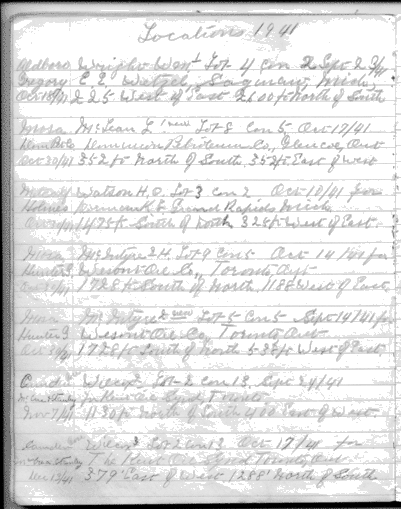 Locations 1941
Aldboro Wright West Lot 4 Con 2 Sept 23/41
Gregory E. E. Wetzel, Saginaw, Mich.
Oct 18/41 225 West of East 2600 ft North of South
Mosa McLean L. Lot 8 Con 5, Oct 17/41
Dominion Petroleum Co, Glencoe, Ont
Oct 30/41 352 ft North of South, 352 ft East of West
Watson H. O. Lot 3 Con 2 Oct 10/41 for
Holmes Grand Rapids Mich
1475 ft South of North 325 ft West of East.
Mosa McIntyre H. Lot 9 Con 5 Oct 14/41 for
Hunter 3 Wesont Oil Co., Toronto, Ont
1728 ft South of North, 1188 West of East,
Mosa McIntyre Lot 5 Con 5 Sept 14/41 for
Hunter 3 Wesont Oil Co Toronto Ont
1728 ft South of North 538 ft West of East,
Camden Lot 2 Con 13, Sept 24/41
for Synd Toronto
Nov 7/41 1130 ft North of South 400 East of West
Camden Lot 2 Con 13 Oct 17/41 for
The Synd Toronto, Ont
Dec 12/41 379' East of West 1288' North of South